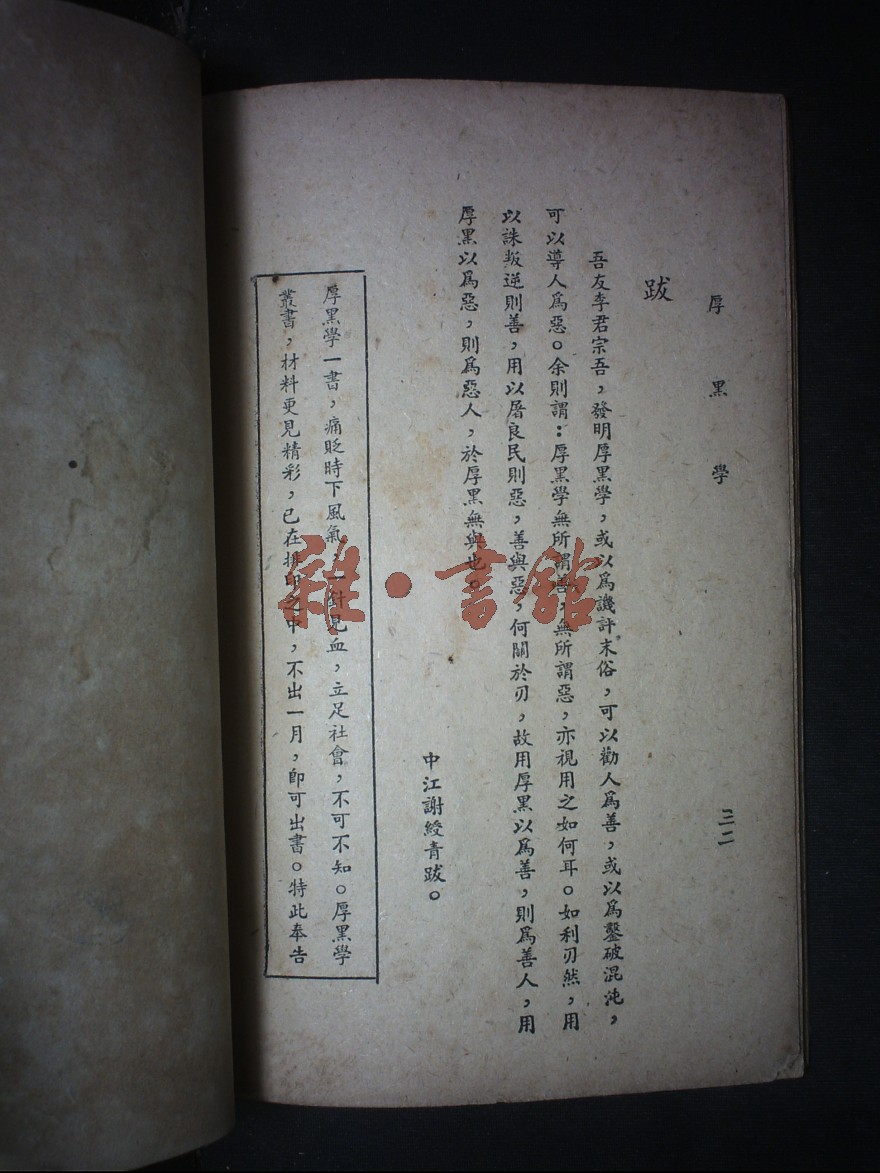 厚黑學
三二
跋
吾友李君宗吾，發明厚黑學，或以爲譏評末俗，可以勸人爲善，或以爲鑿破混沌，
可以導人爲惡。余則謂：厚黑學無所謂善，無所謂惡，亦視用之如何耳。如利刃然，用
以誅叛逆則善，用以屠良民則惡，善與惡，何關於刃，故用厚黑以爲善，則爲善人，用
厚黑以爲惡，則爲惡人，於厚黑無與也。
中江謝綬青跋。
厚黑學一書，痛貶時下風氣，一針見血，立足社會，不可不知。厚黑學
叢書，材料更見精彩，已在排印之中，不出一月，卽可出書。特此奉告
雜·書館